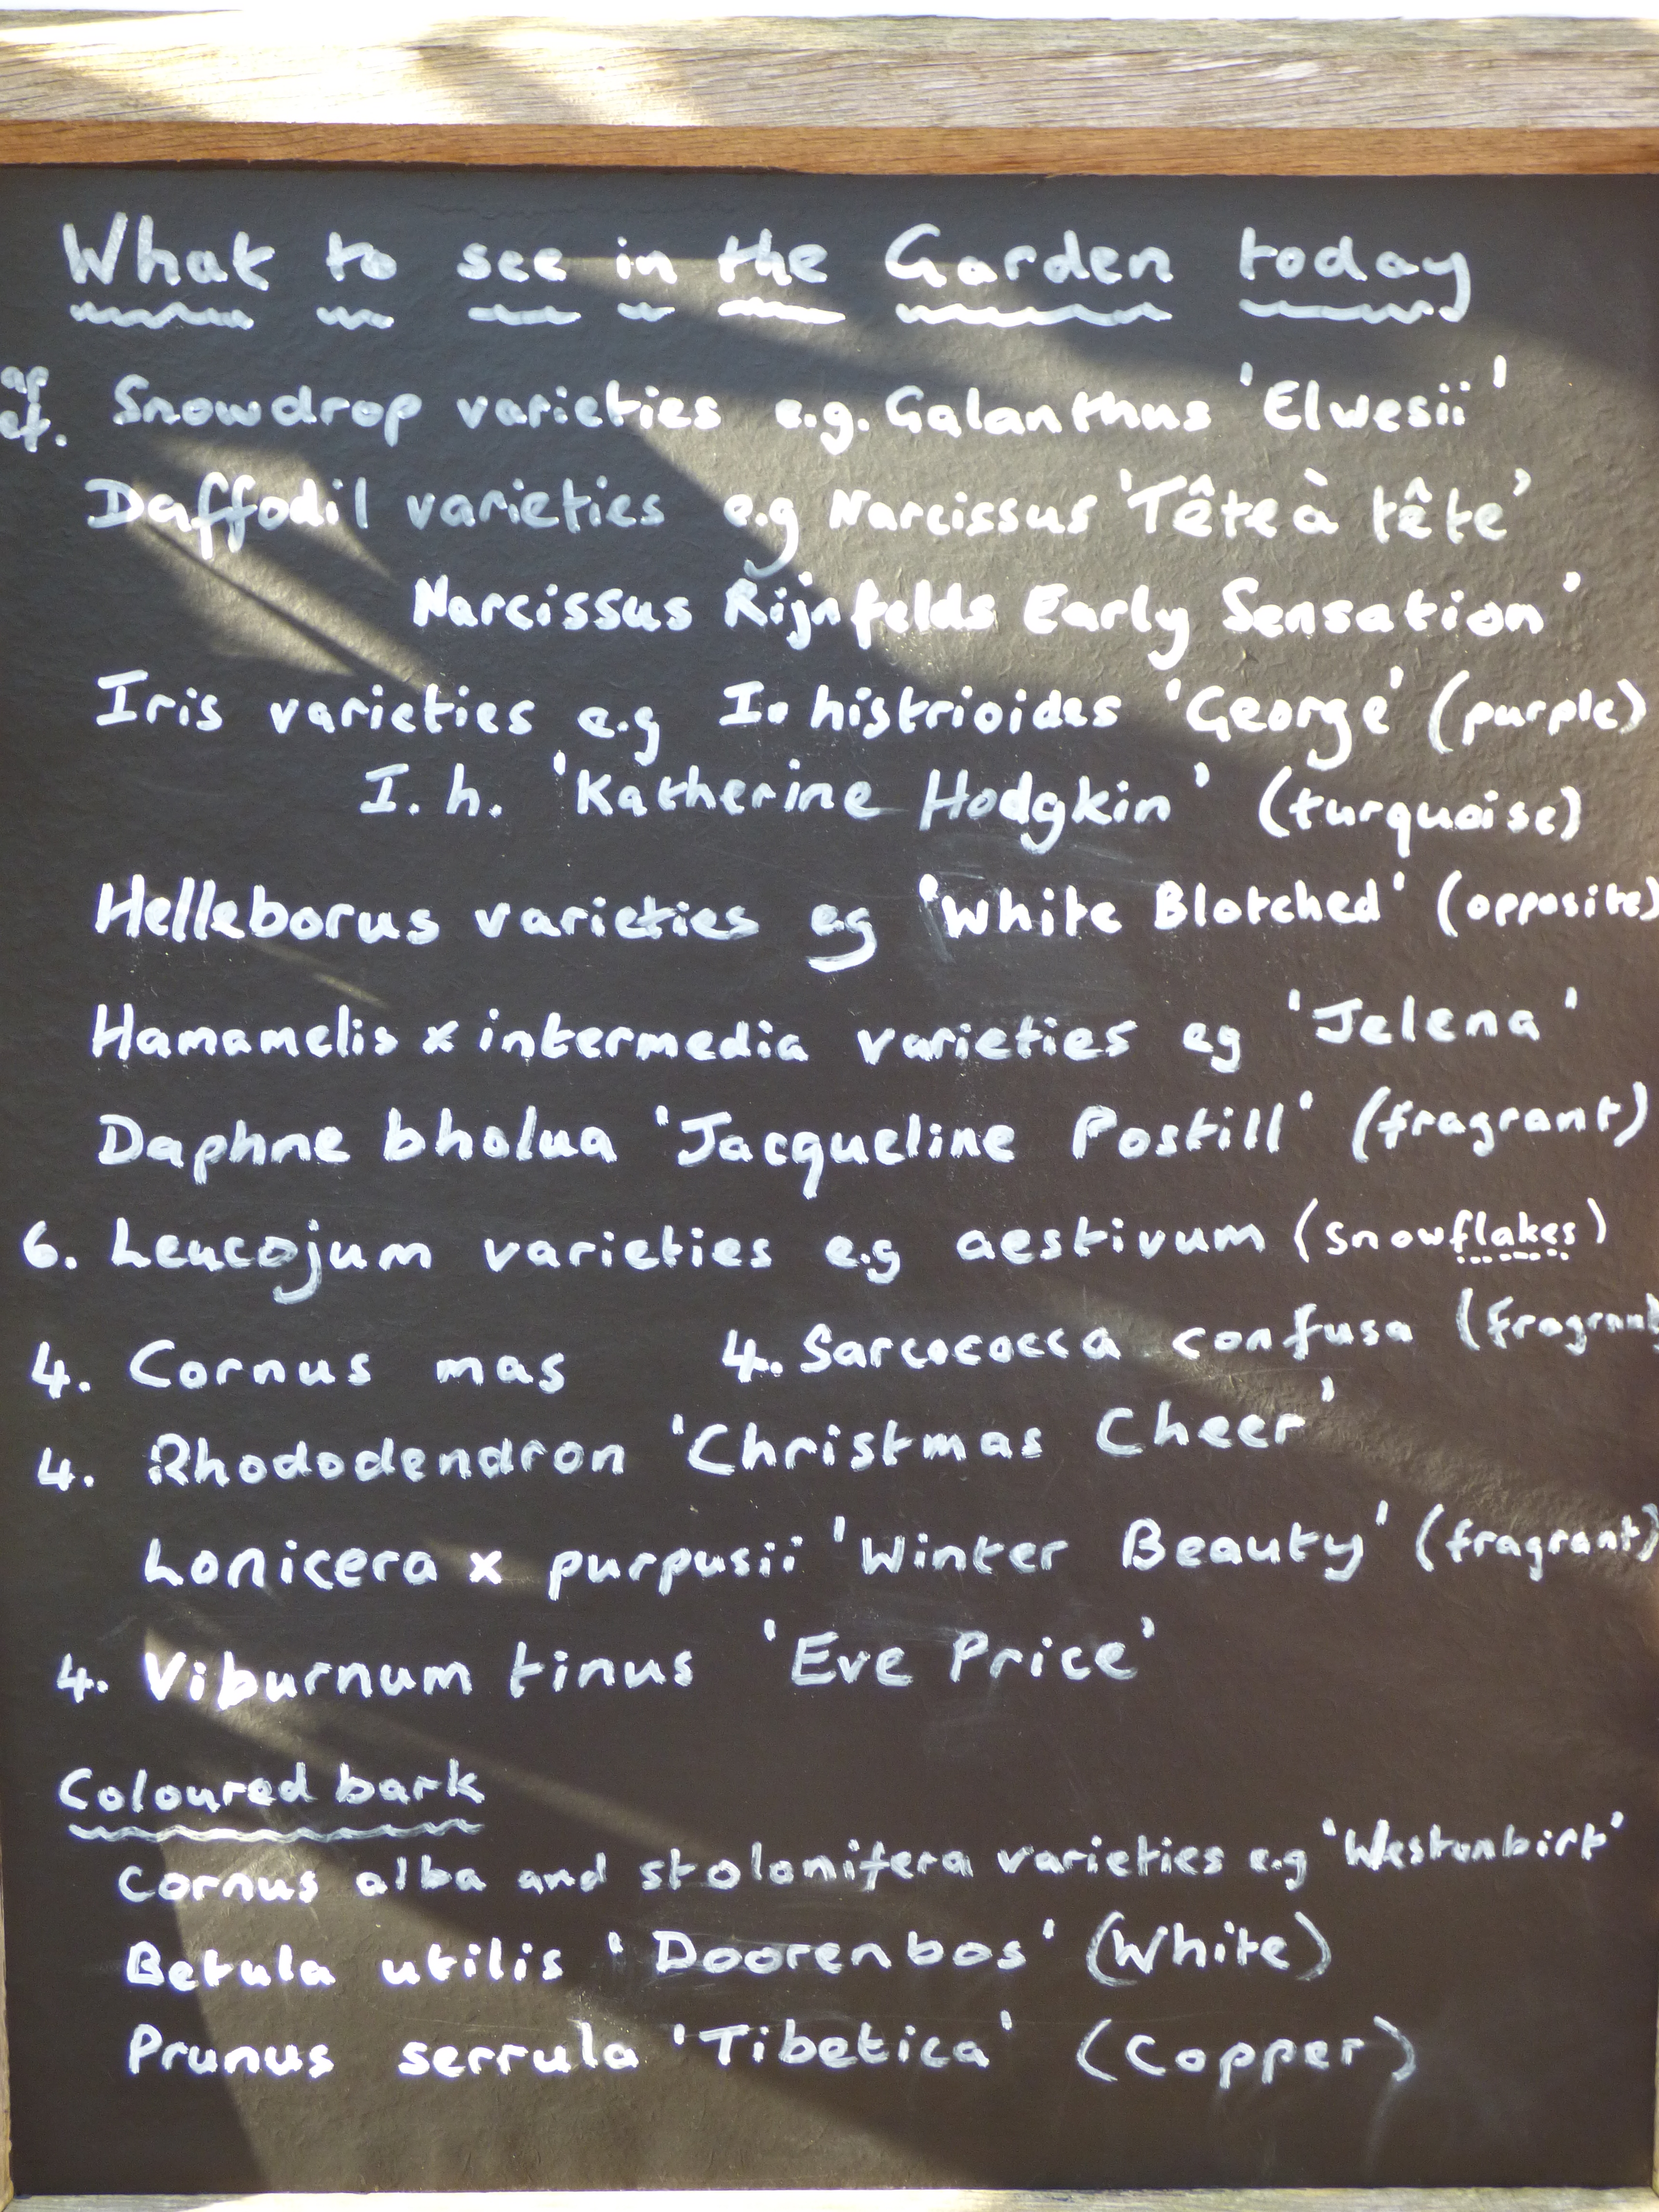 What to see in the Garden today
Snowdrop varieties e.g. Galanthus 'Elwesii'
Daffodil varieties e.g Narcissus 'Tête à tête'
Narcissus Rijnfelds Early Sensation'
Iris varieties e.g I. histrioides 'George' (purple)
I. h. 'Katherine Hodgkin' (turquoise)
Helleborus varieties eg 'White Blotched' (opposite)
Hamamelis x intermedia varieties eg 'Jelena'
Daphne bholua 'Jacqueline Postill' (fragrant)
6. Leucojum varieties e.g aestivum (snowflakes)
4. Cornus mas 4. Sarcococca confusa (fragrant
4. Rhododendron 'Christmas Cheer'
Lonicera x purpusii 'Winter Beauty' (fragrant)
4. Viburnum tinus 'Eve Price'
Coloured bark
Cornus alba and stolonifera varieties e.g 'Westonbirt'
Betula utilis 'Doorenbos' (White)
Prunus serrula 'Tibetica' (Copper)